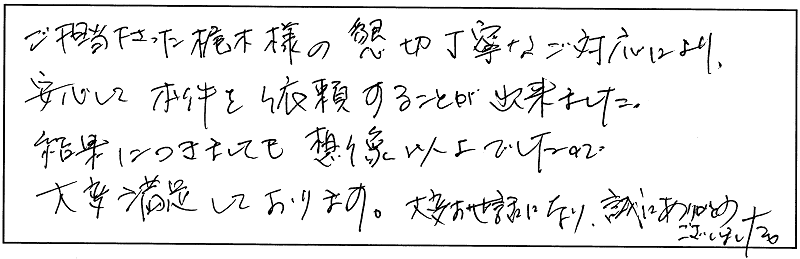 ご担当下さった梶木様の懇切丁寧なご対応により、
安心して本件を依頼することが出来ました。
結果につきましても想像以上でしたので
大変満足しております。大変お世話になり、誠にありがとう
ございました。